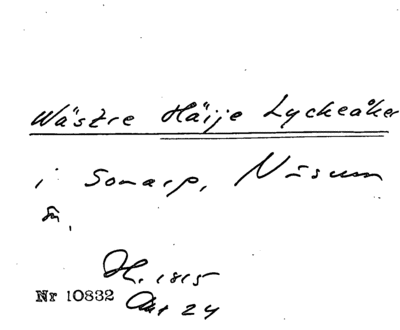 Wästre Häije Lyckeåker
i Sonarp, Näsum
sn.
H. 1815
Nr 10832 Akt 24